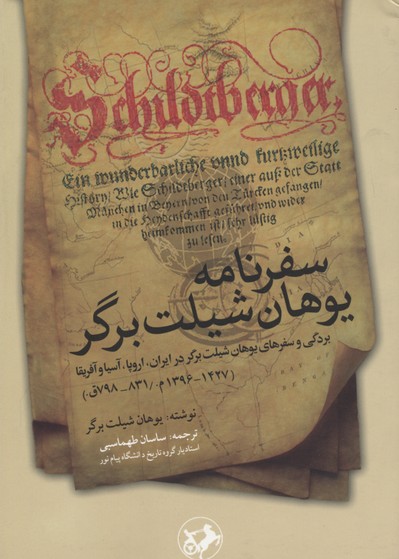 Schildtberger,
Ein wunderbarliche vnnd kurtzweilige
History / Wie Schildtberger / einer auß der Statt
München in Beyern / von den Türcken gefangen /
in die Heydenschafft geführet / vnd wider
heimkommen ist / sehr lüstig
zu lesen.
سفرنامه
یوهان شیلت برگر
بردگی و سفرهای یوهان شیلت برگر در ایران، اروپا، آسیا و آفریقا
(۱۴۲۷-۱۳۹۶م./ ۸۳۱-۷۹۸ق.)
نوشته: یوهان شیلت برگر
ترجمه: ساسان طهماسبی
استادیار گروه تاریخ دانشگاه پیام نور